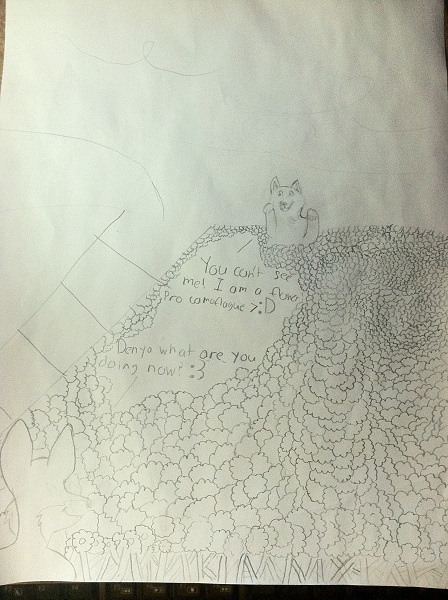 You can't see
me! I am a flower
Pro camoflauge >:D
what are you
doing now? :3